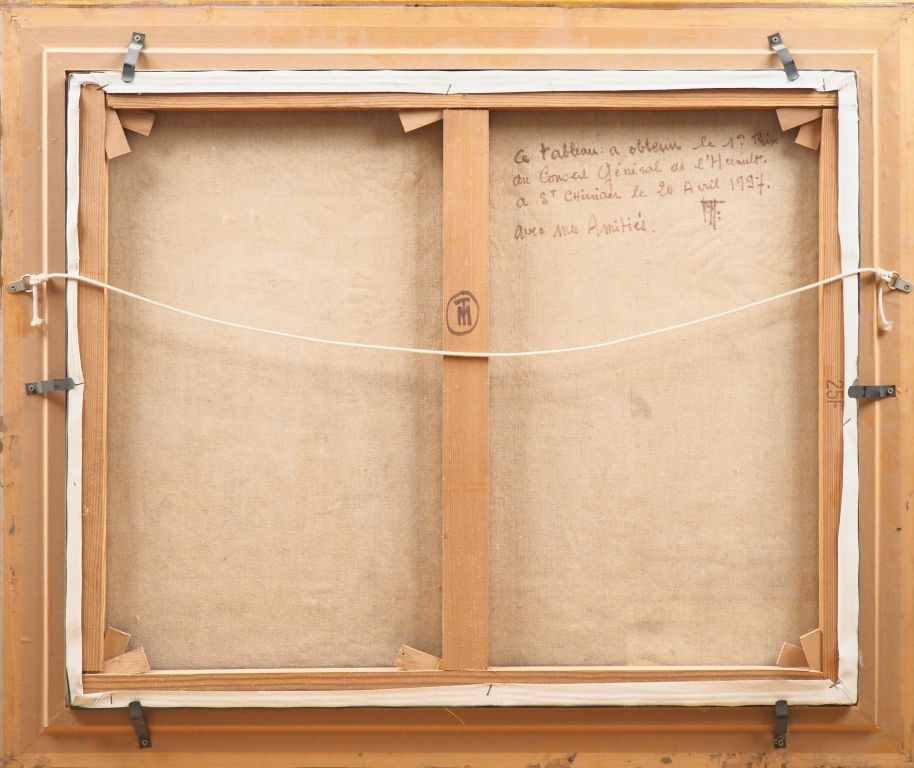 Ce tableau a obtenu le 1er Prix
du Conseil Général de l'Herault.
a ST CHinian le 20 Avril 1997.
avec mes Amitiés.
TM
25F